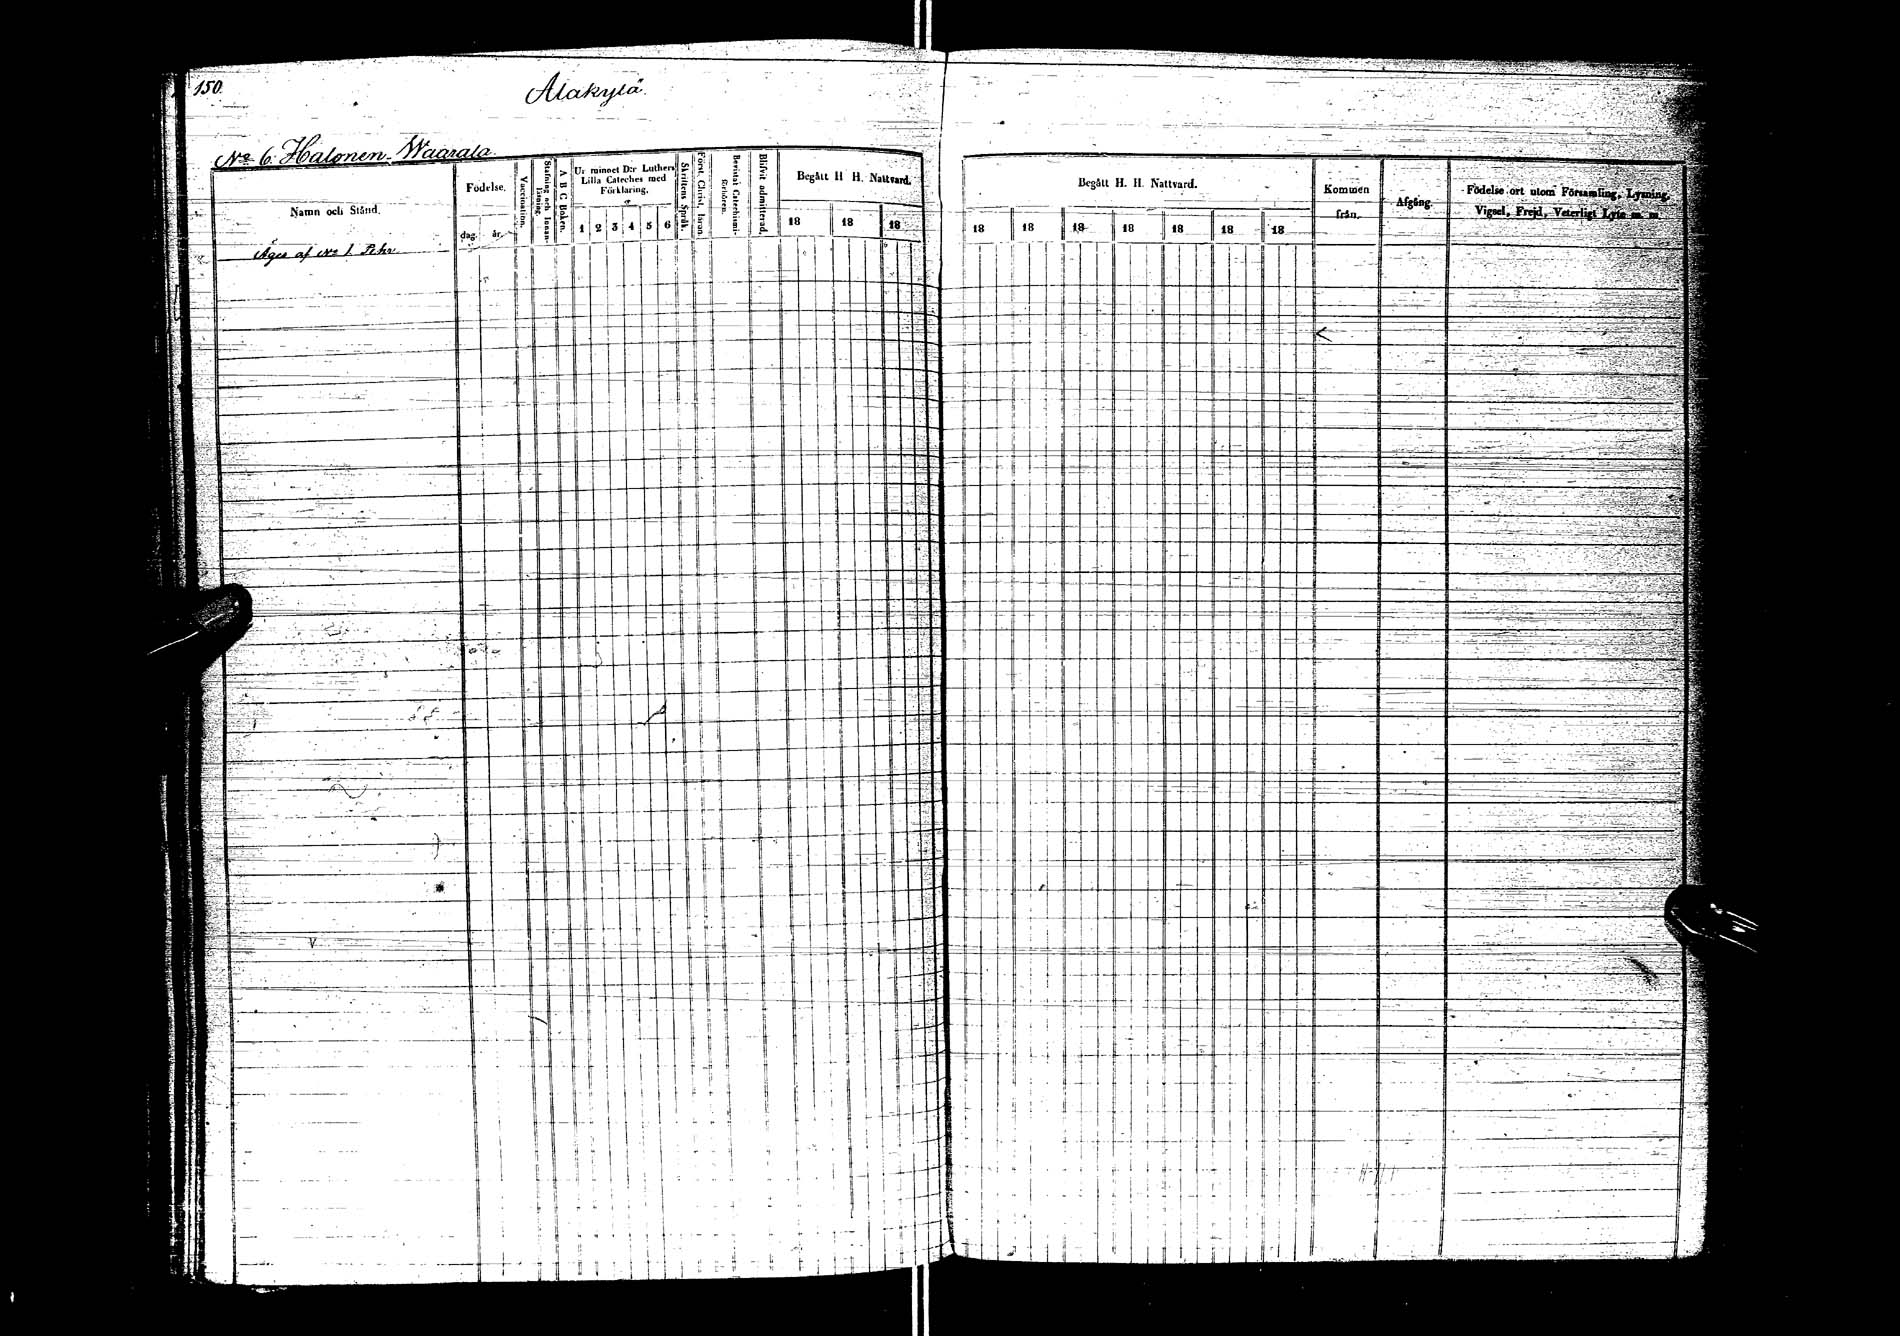 150.
Alakylä.
No 6. Halonen-Waarala
Namn och Stånd.
Födelse.
dag. år.
Vaccination.
Stafning och Innanläsning.
A B C Boken.
Ur minnet D:r Luthers
Lilla Cateches med
Förklaring.
1 2 3 4 5 6
Skriftens Språk.
Först. Christ. Insan.
Bevistat Catechismi
förhören.
Blifvit admitterad.
Begått H H. Nattvard.
18 18 18
Äges af No 1. Pehr
Begått H. H. Nattvard.
18 18 18 18 18 18 18
Kommen
från.
Afgång.
Födelse ort utom Församling, Lysning,
Vigsel, Frejd, Veterligt Lyte m. m.